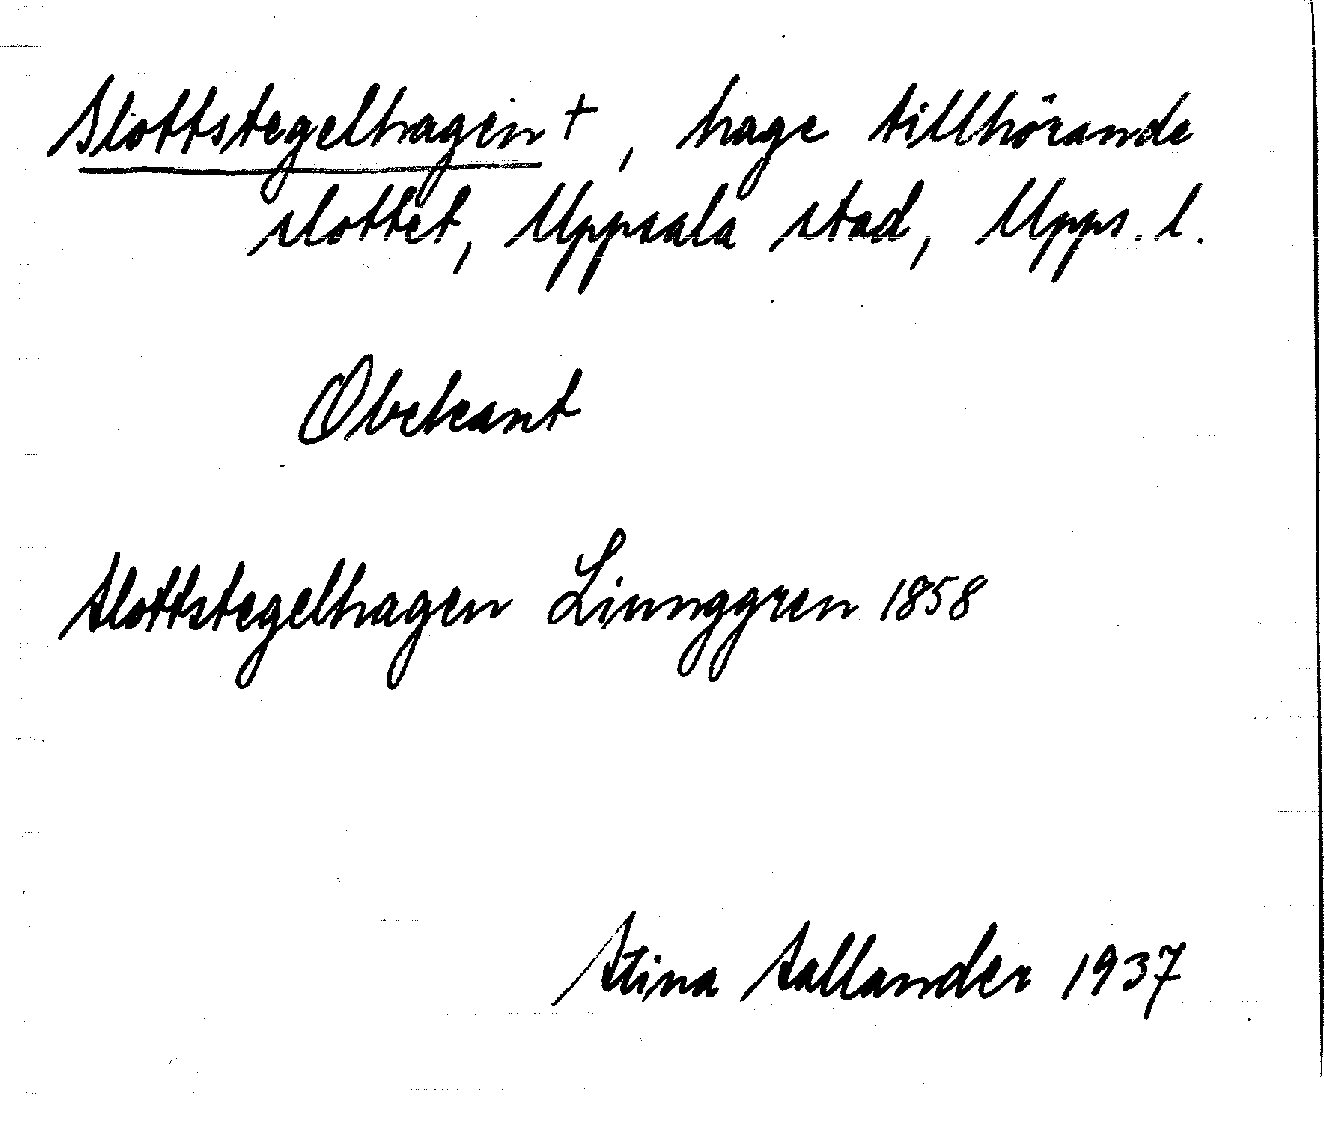 Slottstegelhagen †, hage tillhörande
slottet, Uppsala stad, Upps. l.
Obekant
Slottstegelhagen Liunggren 1858
Stina Sallander 1937